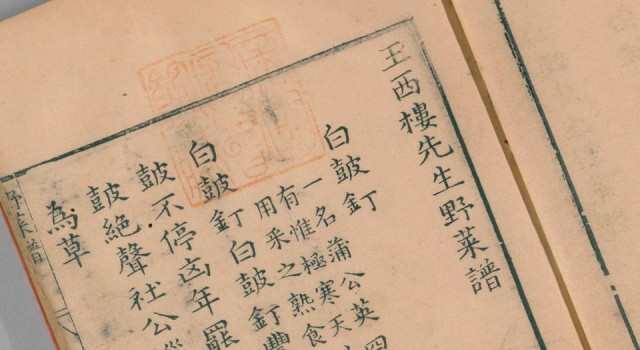 王西樓先生野菜譜
白皷釘
一名蒲公英四
有惟極寒天
用采之熟食
白皷釘白皷釘豐
皷不停凶年罷
皷絕聲社公
為草
野菜譜